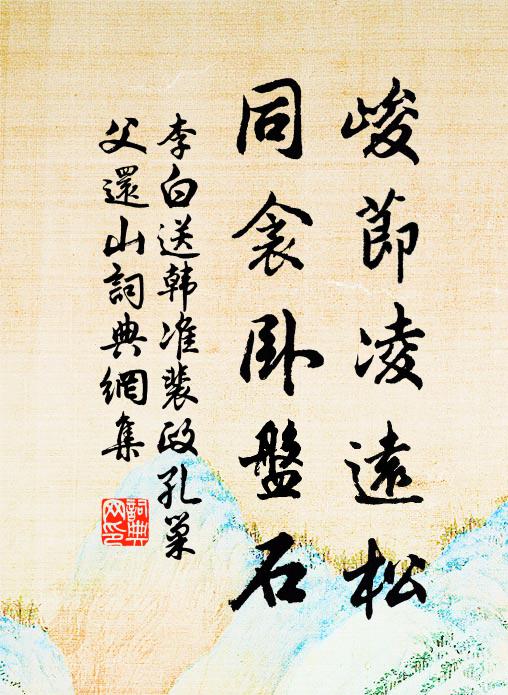 峻節凌遠松
同衾臥盤石
李白送韩准裴政孔巢
父還山詞典網集
詞典
网印